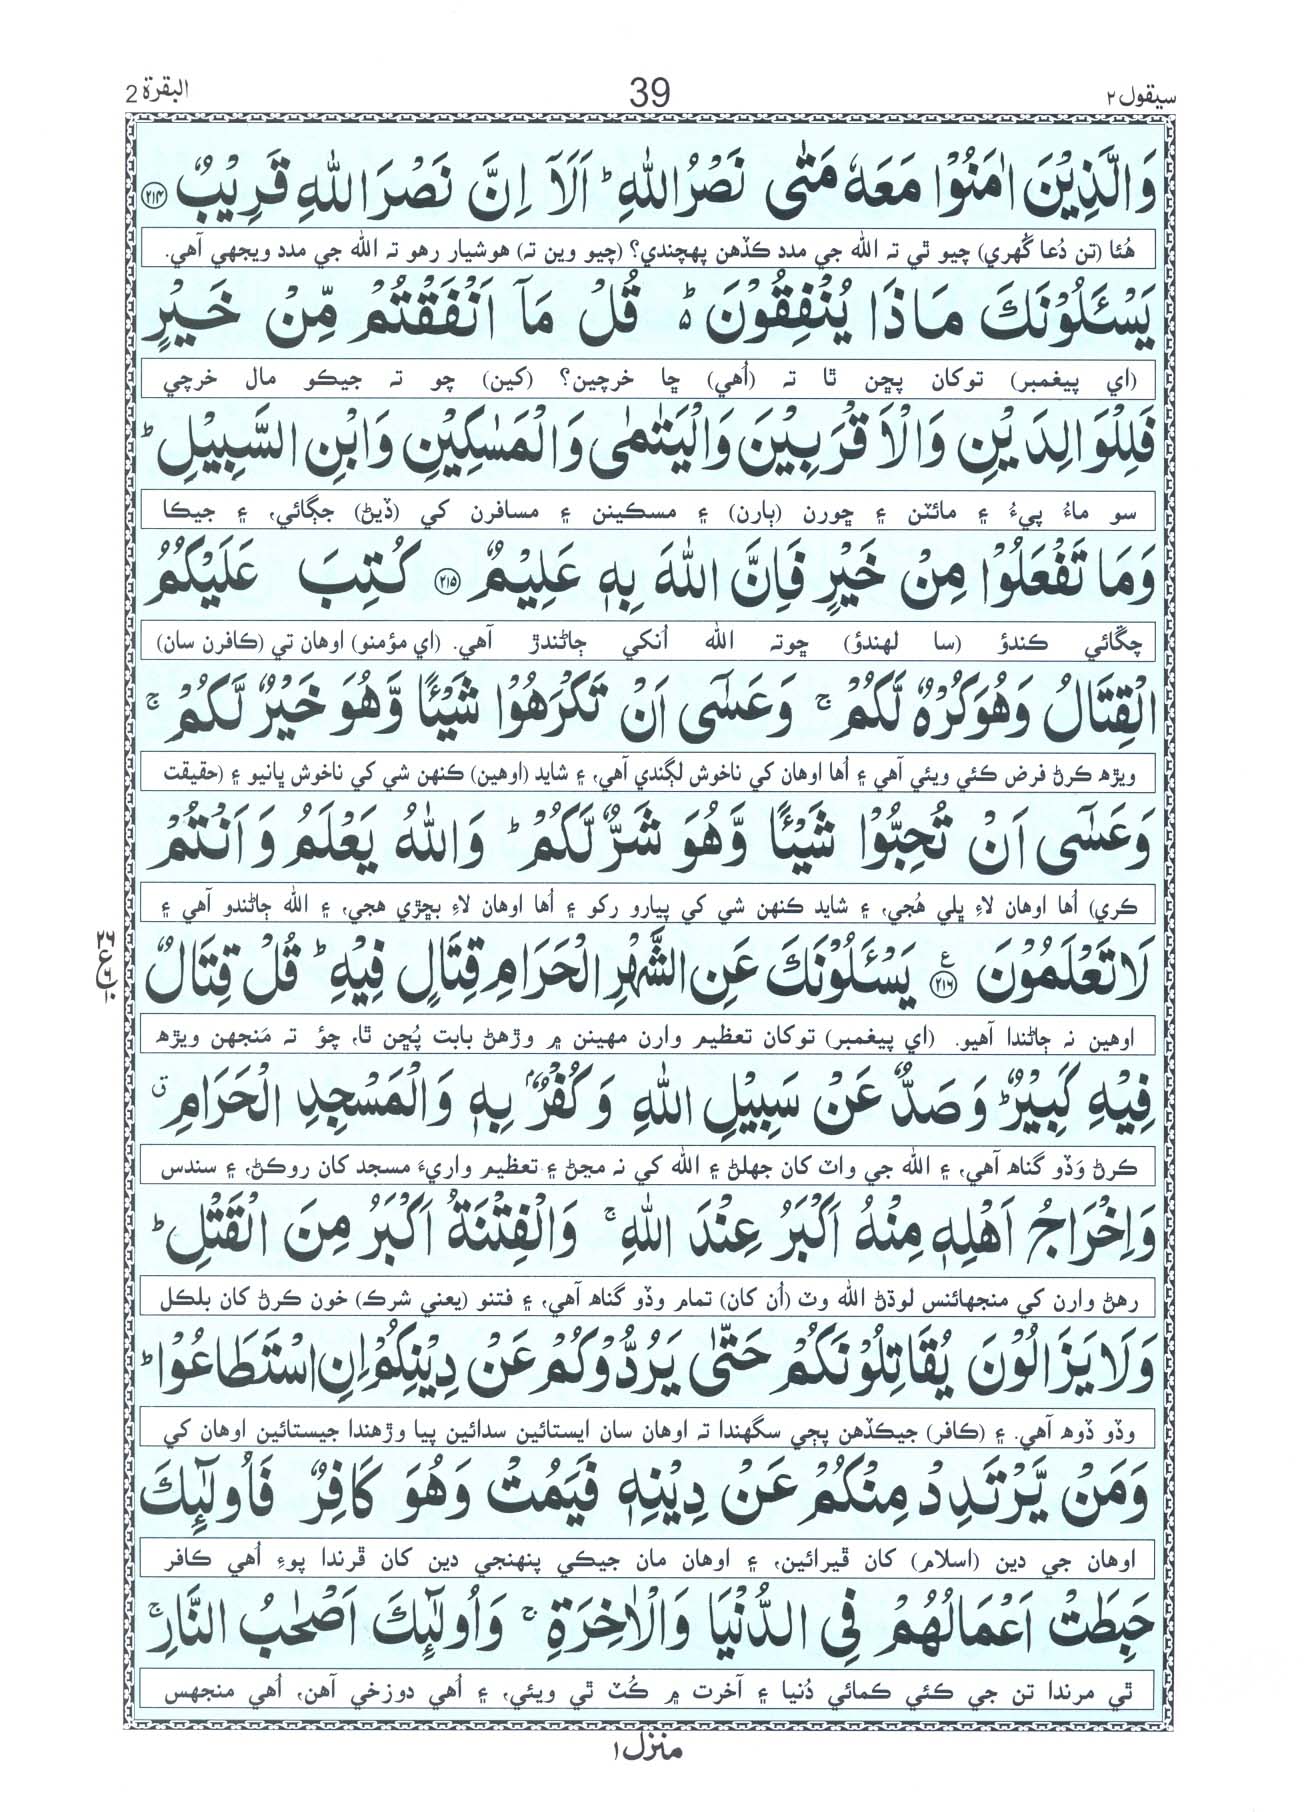 سيقول ٢
39
البقرة 2
وَالَّذِيْنَ اٰمَنُوْا مَعَهٗ مَتٰى نَصْرُ اللّٰهِ ؕ اَلَاۤ اِنَّ نَصْرَ اللّٰهِ قَرِيْبٌ ﴿۲۱۴﴾
هُئا (تن دُعا گُهري) چيو ٿي ته الله جي مدد ڪڏهن پهچندي؟ (چيو وين ته) هوشيار رهو ته الله جي مدد ويجهي آهي.
يَسْـَٔلُوْنَكَ مَاذَا يُنْفِقُوْنَ ؕ۬ قُلْ مَاۤ اَنْفَقْتُمْ مِّنْ خَيْرٍ
(اي پيغمبر) توکان پڇن ٿا ته (اُهي) ڇا خرچين؟ (کين) چو ته جيڪو مال خرچي
فَلِلْوَالِدَيْنِ وَالْاَقْرَبِيْنَ وَالْيَتٰمٰى وَالْمَسٰكِيْنِ وَابْنِ السَّبِيْلِ ؕ
سو ماءُ پيءُ ۽ مائٽن ۽ ڇورن (ٻارن) ۽ مسڪينن ۽ مسافرن کي (ڏيڻ) جڳائي، ۽ جيڪا
وَمَا تَفْعَلُوْا مِنْ خَيْرٍ فَاِنَّ اللّٰهَ بِهٖ عَلِيْمٌ ﴿۲۱۵﴾ كُتِبَ عَلَيْكُمُ
چڱائي ڪندؤ (سا لهندؤ) ڇوته الله اُنکي ڄاڻندڙ آهي. (اي مؤمنو) اوهان تي (ڪافرن سان)
الْقِتَالُ وَهُوَ كُرْهٌ لَّكُمْ ۚ وَعَسٰۤى اَنْ تَكْرَهُوْا شَيْـًٔا وَّهُوَ خَيْرٌ لَّكُمْ ۚ
ويڙھ ڪرڻ فرض ڪئي ويئي آهي ۽ اُها اوهان کي ناخوش لڳندي آهي، ۽ شايد (اوهين) ڪنهن شي کي ناخوش ڀانيو ۽ (حقيقت
وَعَسٰۤى اَنْ تُحِبُّوْا شَيْـًٔا وَّهُوَ شَرٌّ لَّكُمْ ؕ وَاللّٰهُ يَعْلَمُ وَاَنْتُمْ
ڪري) اُها اوهان لاءِ ڀلي هُجي، ۽ شايد ڪنهن شي کي پيارو رکو ۽ اُها اوهان لاءِ بڇڙي هجي، ۽ الله ڄاڻندو آهي ۽
لَا تَعْلَمُوْنَ ﴿۲۱۶﴾ ع يَسْـَٔلُوْنَكَ عَنِ الشَّهْرِ الْحَرَامِ قِتَالٍ فِيْهِ ؕ قُلْ قِتَالٌ
٢٦
ع
١٠
اوهين نه ڄاڻندا آهيو. (اي پيغمبر) توکان تعظيم وارن مهينن ۾ وڙهڻ بابت پُڇن ٿا، چؤ ته مَنجهن ويڙھ
فِيْهِ كَبِيْرٌ ؕ وَصَدٌّ عَنْ سَبِيْلِ اللّٰهِ وَكُفْرٌۢ بِهٖ وَالْمَسْجِدِ الْحَرَامِ ۗ
ڪرڻ وَڏو گناھ آهي، ۽ الله جي واٽ کان جهلڻ ۽ الله کي نه مڃڻ ۽ تعظيم واريءَ مسجد کان روڪڻ، ۽ سندس
وَاِخْرَاجُ اَهْلِهٖ مِنْهُ اَكْبَرُ عِنْدَ اللّٰهِ ۚ وَالْفِتْنَةُ اَكْبَرُ مِنَ الْقَتْلِ ؕ
رهڻ وارن کي منجهائنس لوڌڻ الله وٽ (اُن کان) تمام وڏو گناھ آهي، ۽ فتنو (يعني شرڪ) خون ڪرڻ کان بلڪل
وَلَا يَزَالُوْنَ يُقَاتِلُوْنَكُمْ حَتّٰى يَرُدُّوْكُمْ عَنْ دِيْنِكُمْ اِنِ اسْتَطَاعُوْا ؕ
وڏو ڏوھ آهي. ۽ (ڪافر) جيڪڏهن پڄي سگهندا ته اوهان سان ايستائين سدائين پيا وڙهندا جيستائين اوهان کي
وَمَنْ يَّرْتَدِدْ مِنْكُمْ عَنْ دِيْنِهٖ فَيَمُتْ وَهُوَ كَافِرٌ فَاُولٰٓئِكَ
اوهان جي دين (اسلام) کان ڦيرائين، ۽ اوهان مان جيڪي پنهنجي دين کان ڦرندا پوءِ اُهي ڪافر
حَبِطَتْ اَعْمَالُهُمْ فِي الدُّنْيَا وَالْاٰخِرَةِ ۚ وَاُولٰٓئِكَ اَصْحٰبُ النَّارِ ۚ
ٿي مرندا تن جي ڪئي ڪمائي دُنيا ۽ آخرت ۾ کُٽ ٿي ويئي، ۽ اُهي دوزخي آهن، اُهي منجهس
منزل ١